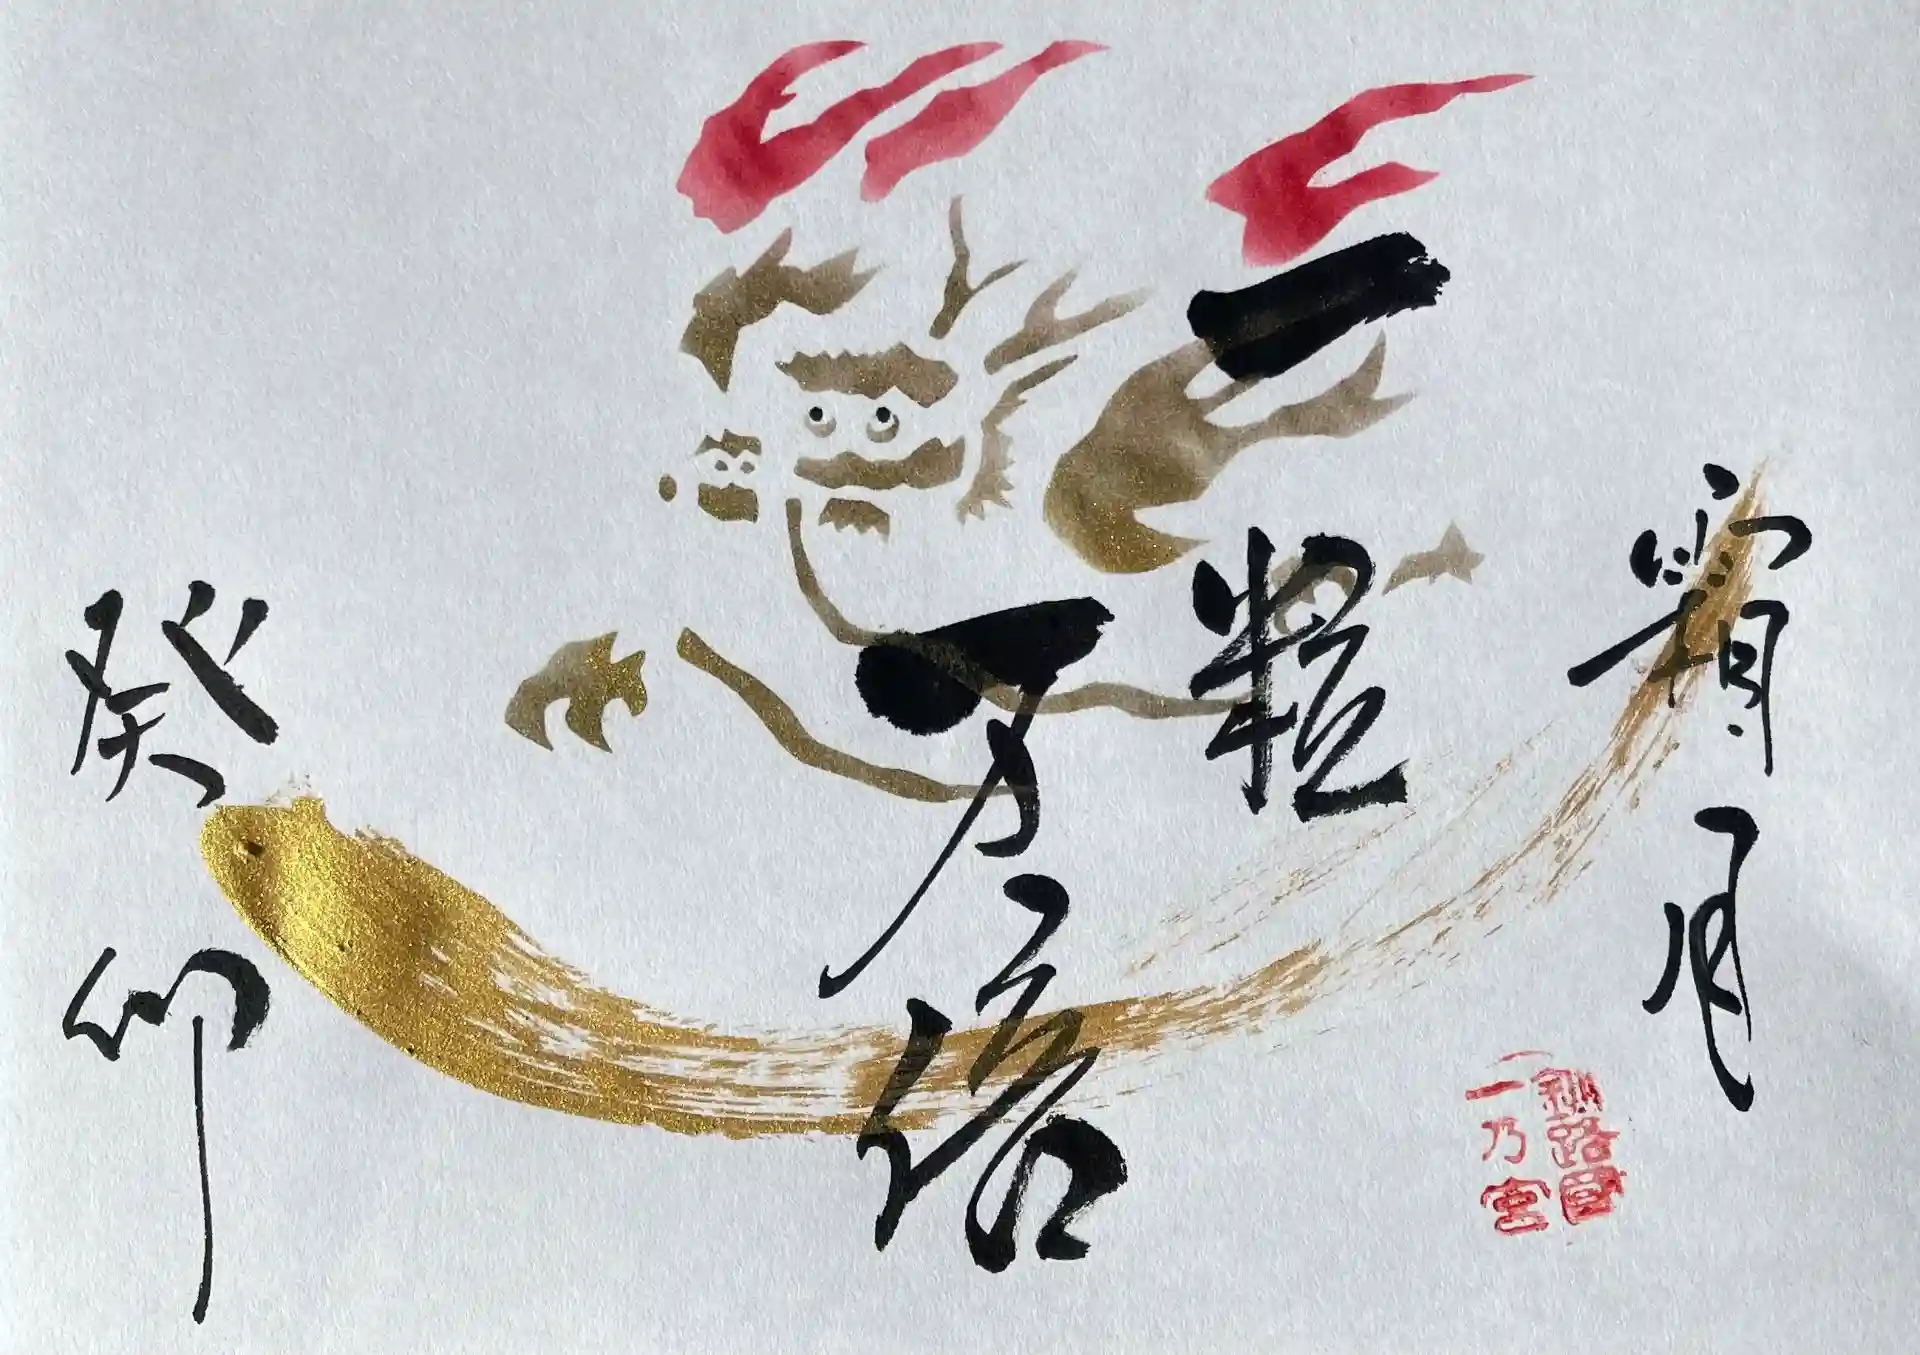 霜月
釧路國
一乃宮
一粒
万倍
癸卯